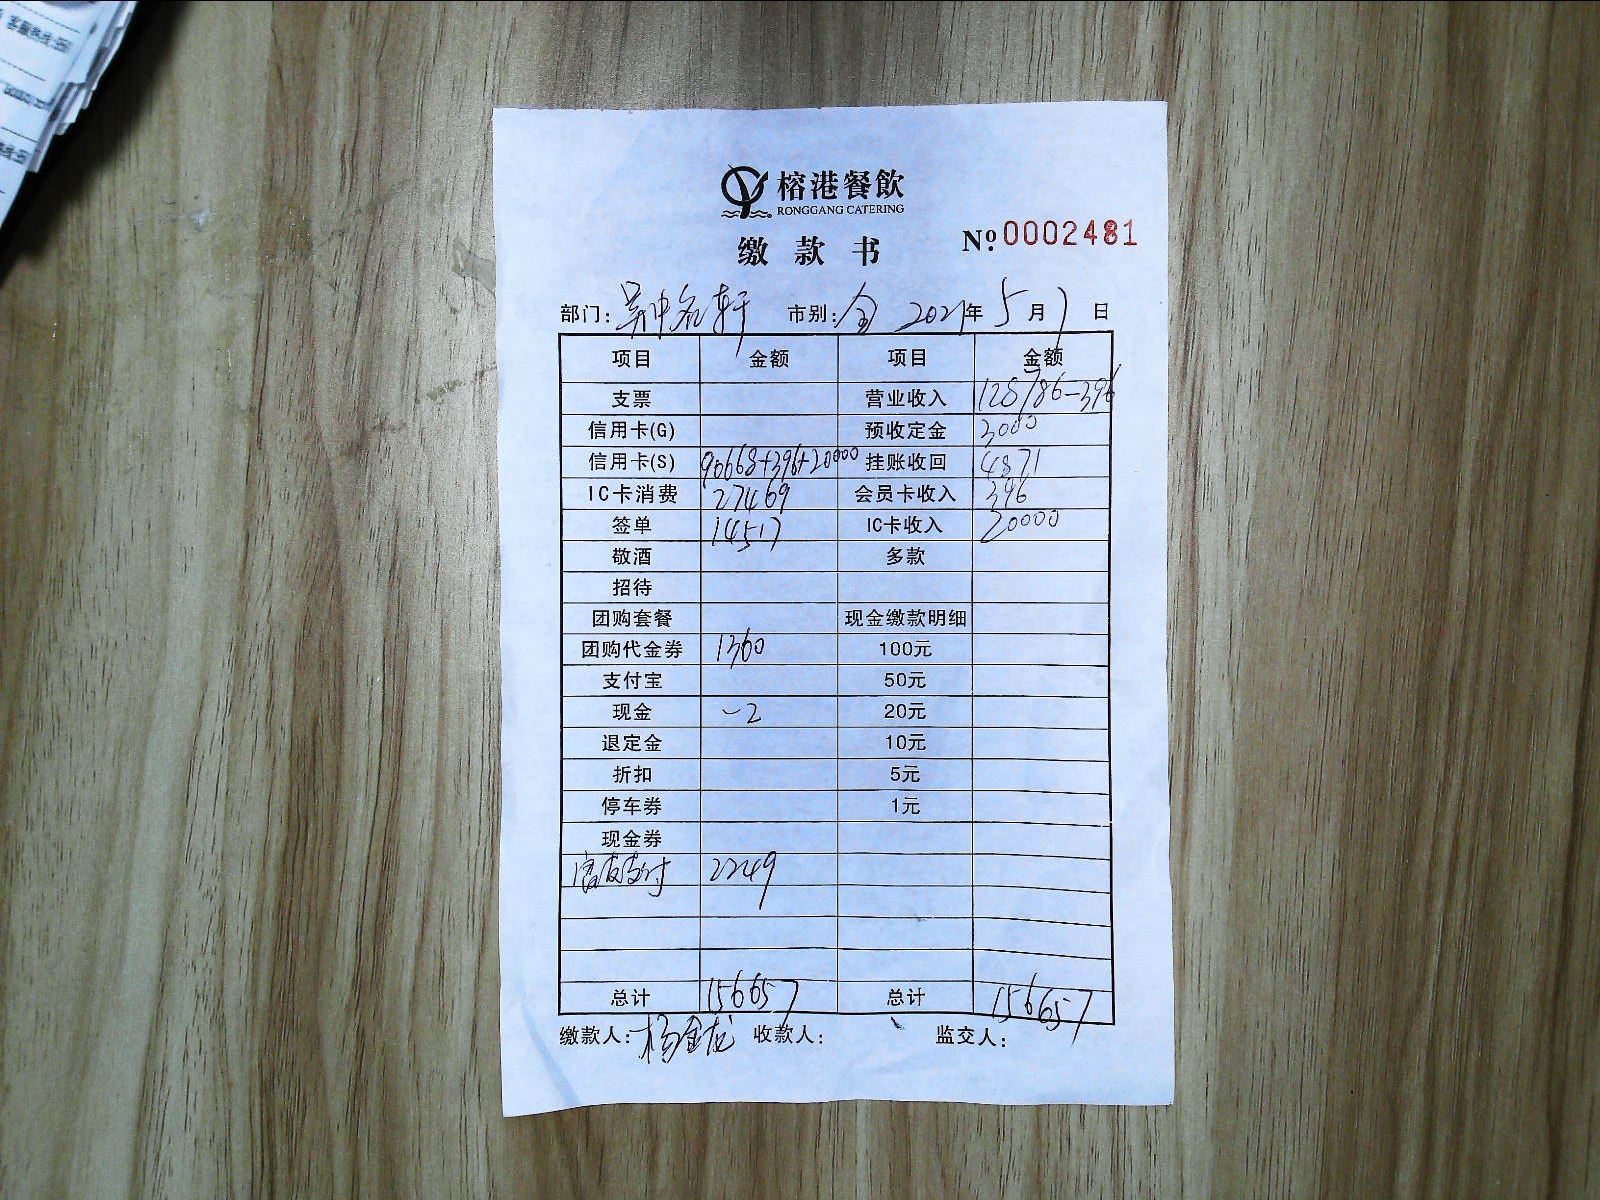 榕港餐飲
RONGGANG CATERING
缴款书
№ 0002481
部门: 吴中名轩 市别: 全 2021年5月7日
项目 金额 项目 金额
支票 营业收入 128786-396
信用卡(G) 预收定金 3000
信用卡(S) 90668+396+20000 挂账收回 4871
IC卡消费 27469 会员卡收入 396
签单 14517 IC卡收入 20000
敬酒 多款
招待
团购套餐 现金缴款明细
团购代金券 1360 100元
支付宝 50元
现金 -2 20元
退定金 10元
折扣 5元
停车券 1元
现金券
支付 2249
总计 156657 总计 156657
缴款人: 杨金龙 收款人: 监交人: